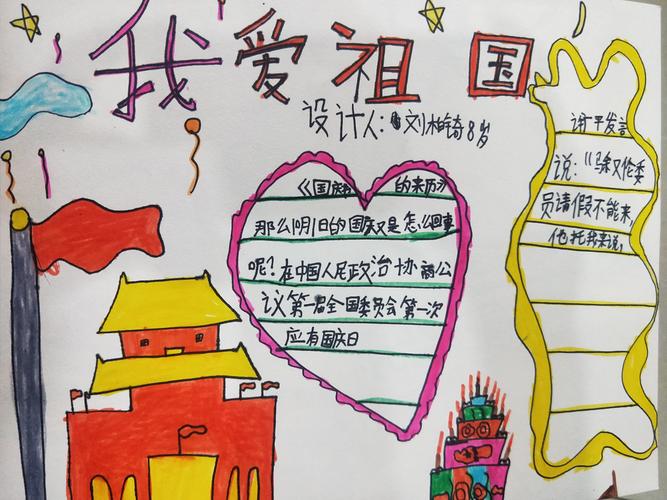 我爱祖国
设计人:刘柏锜8岁
《国庆 的来历》
那么10月1日的国庆又是怎么回事
呢?在中国人民政治协商公
议第一届全国委员会第一次
应有国庆日
谢平发言
说:"马叙伦委
员请假不能来,
他托我来说,